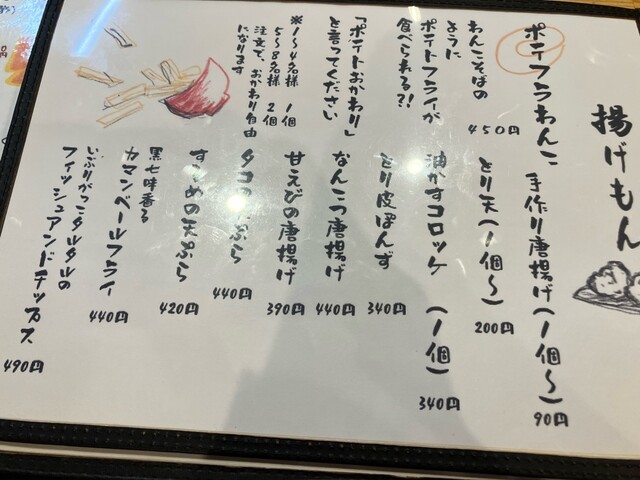 揚げもん
ポテフラわんこ
450円
わんこそばの
ように
ポテトフライが
食べられる?!
「ポテトおかわり」
と言ってください
※1〜4名様 1個
5〜8名様 2個
注文で、おかわり自由
になります
手作り唐揚げ(1個〜)
90円
とり天(1個〜)
200円
油かすコロッケ(1個)
340円
とり皮ぽんず
340円
なんこつ唐揚げ
440円
甘えびの唐揚げ
390円
タコの ぷら
440円
するめの天ぷら
420円
黒七味香る
カマンベールフライ
440円
いぶりがっこタルタルの
フィッシュアンドチップス
490円